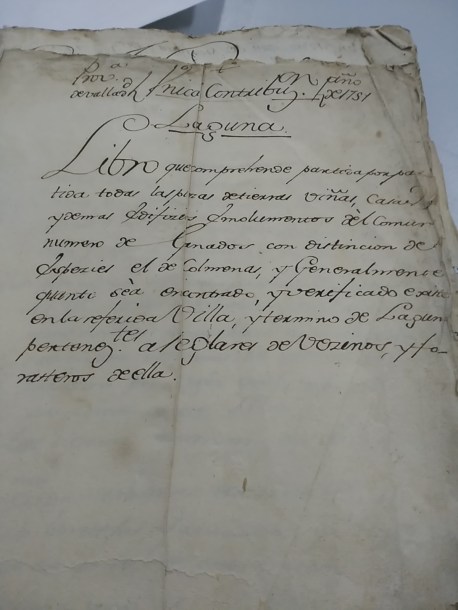 Prov.ª
de vallad.d Unica Contribuz.n año
de 1751
Laguna.
Libro que comprehende partida por par
tida todas las piezas de tierras viñas, Casas
y demas Edifizios Emolumentos del Comun
numero de Ganados con distincion de
Especies el de Colmenas, y Generalmente
quanto sea encontrado, y verificado
en la referida Villa, y termino de Laguna
pertenez.tes a Seglares de Vezinos, y fo-
rasteros de ella.